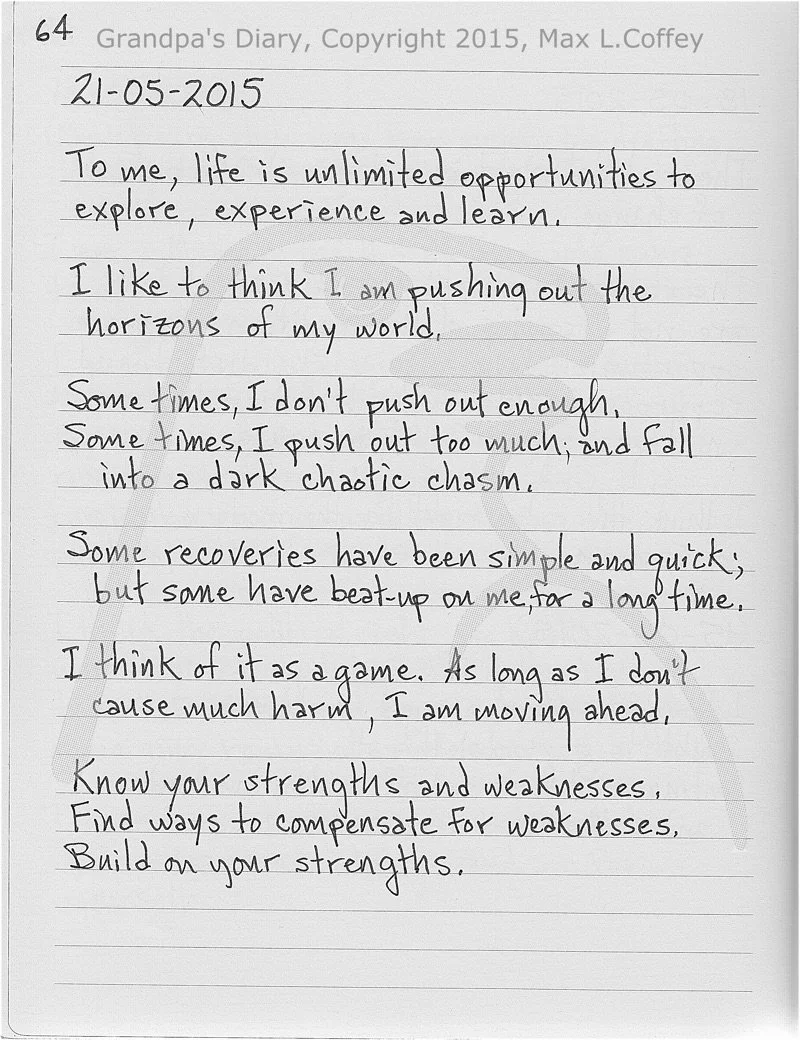 64 Grandpa's Diary, Copyright 2015, Max L.Coffey
21-05-2015
To me, life is unlimited opportunities to
explore, experience and learn.
I like to think I am pushing out the
horizons of my world.
Some times, I don't push out enough.
Some times, I push out too much; and fall
into a dark chaotic chasm.
Some recoveries have been simple and quick;
but some have beat-up on me, for a long time.
I think of it as a game. As long as I don't
cause much harm, I am moving ahead.
Know your strengths and weaknesses.
Find ways to compensate for weaknesses.
Build on your strengths.